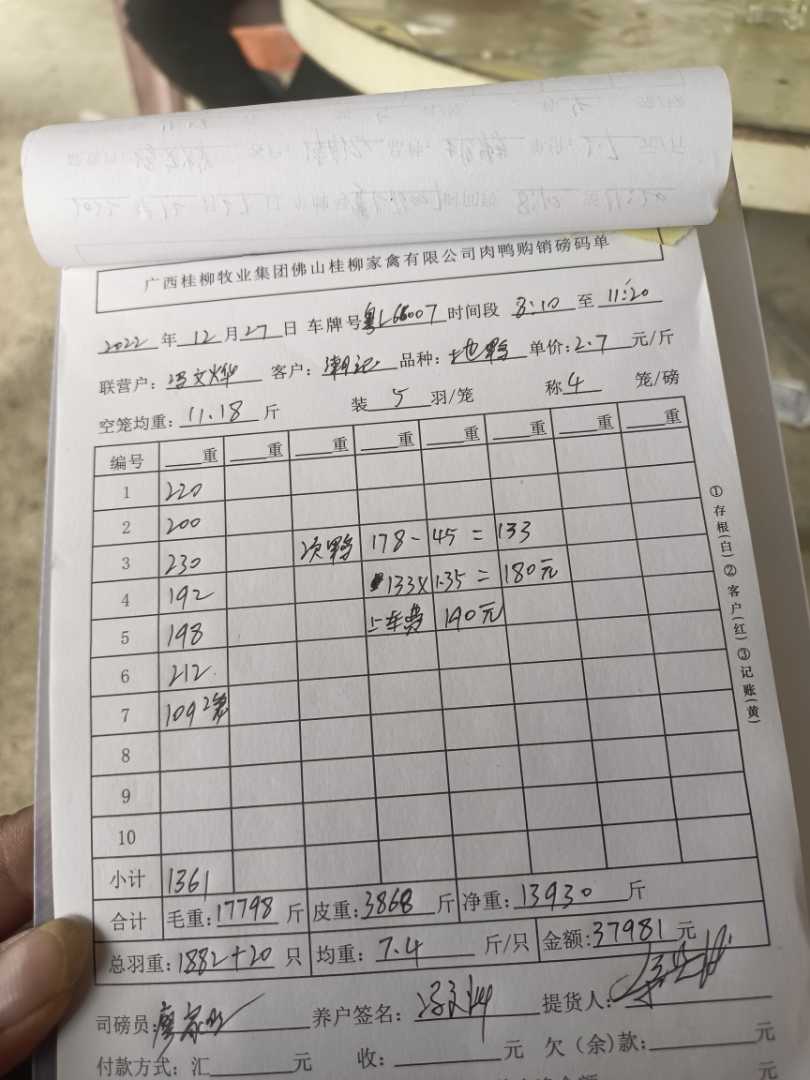 广西桂柳牧业集团佛山桂柳家禽有限公司肉鸭购销磅码单
2022年12月27日 车牌号粤L66007时间段 8:10 至 11:20
联营户:冯文烨 客户:潮记 品种:土也鸭 单价:2.7元/斤
空笼均重:11.18斤 装5羽/笼 称4笼/磅
编号 重 重 重 重 重 重 重 重
1 220
2 200
3 230 次鸭 178-45=133
4 192 133×1.35=180元
5 198 上车费 190元
6 212
7 109 2笼
8
9
10
小计 1361
合计 毛重:17798斤 皮重:3868斤 净重:13930斤
总羽重:1882+20只 均重:7.4斤/只 金额:37981元
司磅员: 养户签名: 提货人:
付款方式:汇 元 收: 元 欠(余)款: 元
元
①存根(白)②客户(红)③记账(黄)